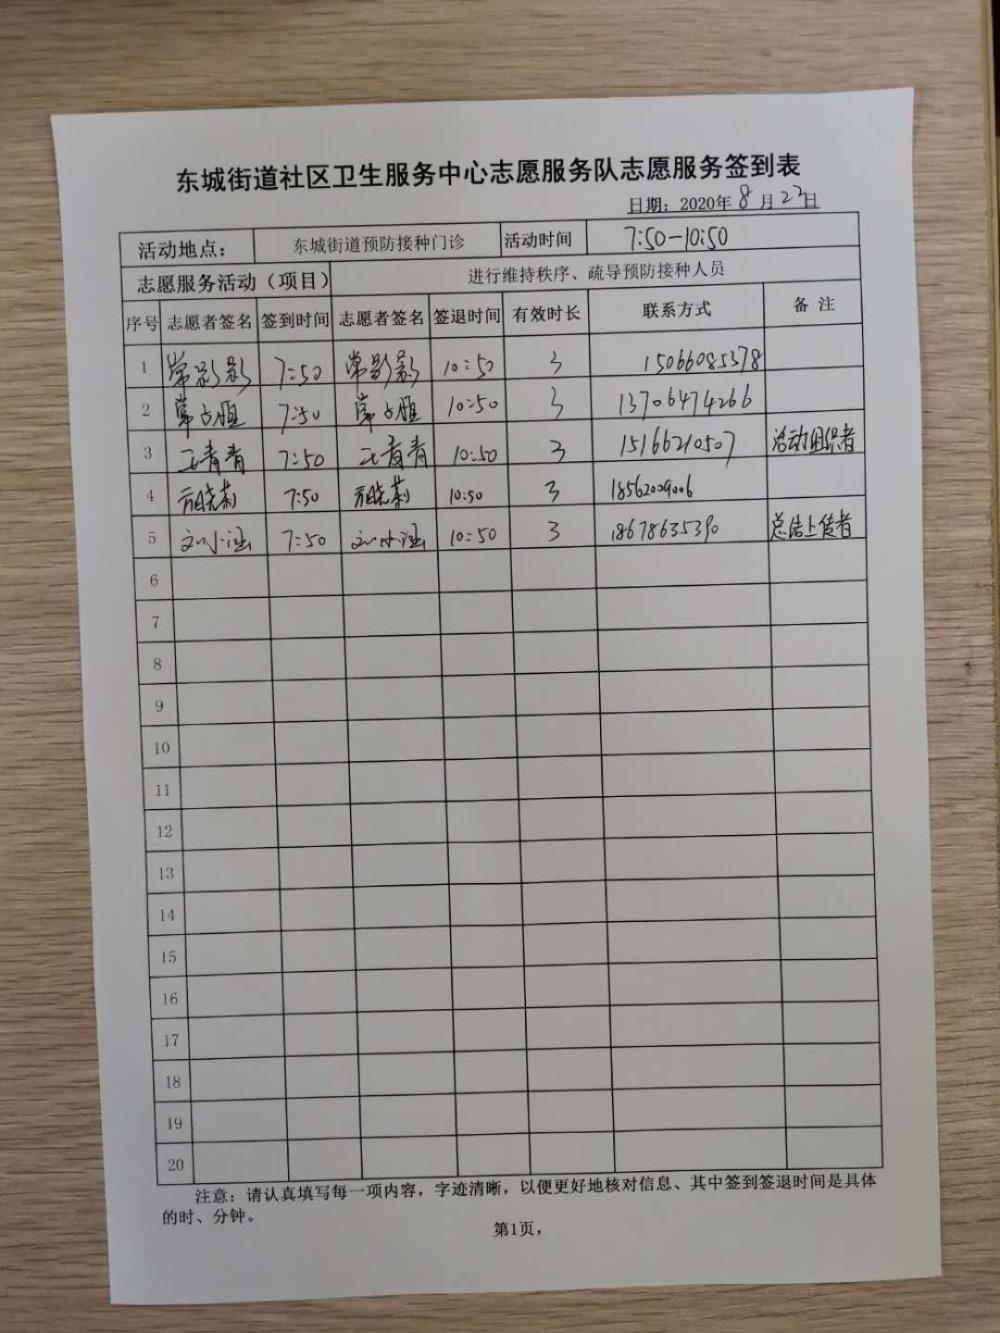 东城街道社区卫生服务中心志愿服务队志愿服务签到表
日期：2020年8月22日
活动地点： 东城街道预防接种门诊 活动时间 7:50-10:50
志愿服务活动（项目） 进行维持秩序、疏导预防接种人员
序号 志愿者签名 签到时间 志愿者签名 签退时间 有效时长 联系方式 备 注
1 常影影 7:50 常影影 10:50 3 15066085378
2 7:50 10:50 3 13706474266
3 王青青 7:50 王青青 10:50 3 15166210507 活动组织者
4 7:50 10:50 3 18562009006
5 刘小涵 7:50 刘小涵 10:50 3 18678635390 总结上传者
6
7
8
9
10
11
12
13
14
15
16
17
18
19
20
注意：请认真填写每一项内容，字迹清晰，以便更好地核对信息、其中签到签退时间是具体
的时、分钟。
第1页，